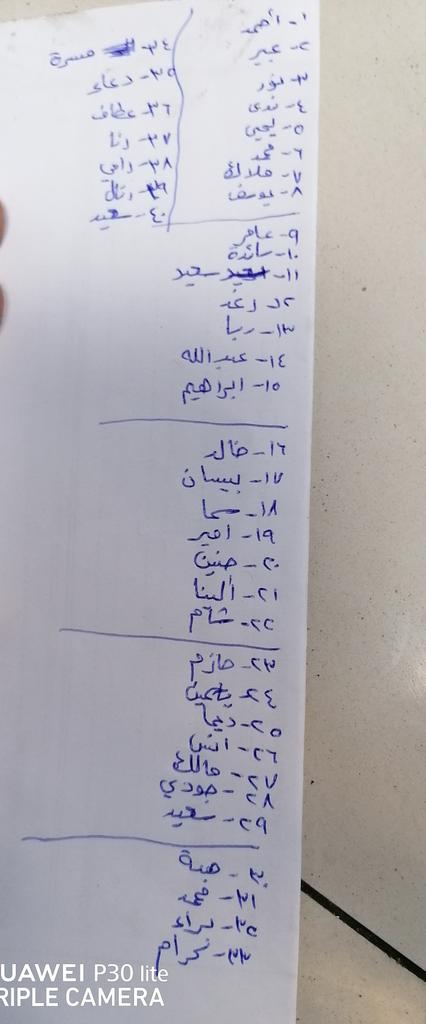 ١- أحمد
٢- عبير
٣- نور
٤- ندى
٥- يحيى
٦- محمد
٧- ملاك
٨- يوسف
٩- عامر
١٠- سائدة
١١- سعيد
١٢- رغد
١٣- ربا
١٤- عبدالله
١٥- ابراهيم
١٦- خالد
١٧- بيسان
١٨- سما
١٩- امير
٢٠- حنين
٢١- ألينا
٢٢- شآم
٢٣- حازم
٢٤- ياسمين
٢٥- ديما
٢٦- أنس
٢٧- مالك
٢٨- جودي
٢٩- سعيد
٣٠- هبة
٣١- محمد
٣٢- براء
٣٣- كرام
٣٤- مسرة
٣٥- دعاء
٣٦- عطاف
٣٧- رنا
٣٨- رامي
٣٩-
٤٠- سعيد
UAWEI P30 lite
RIPLE CAMERA